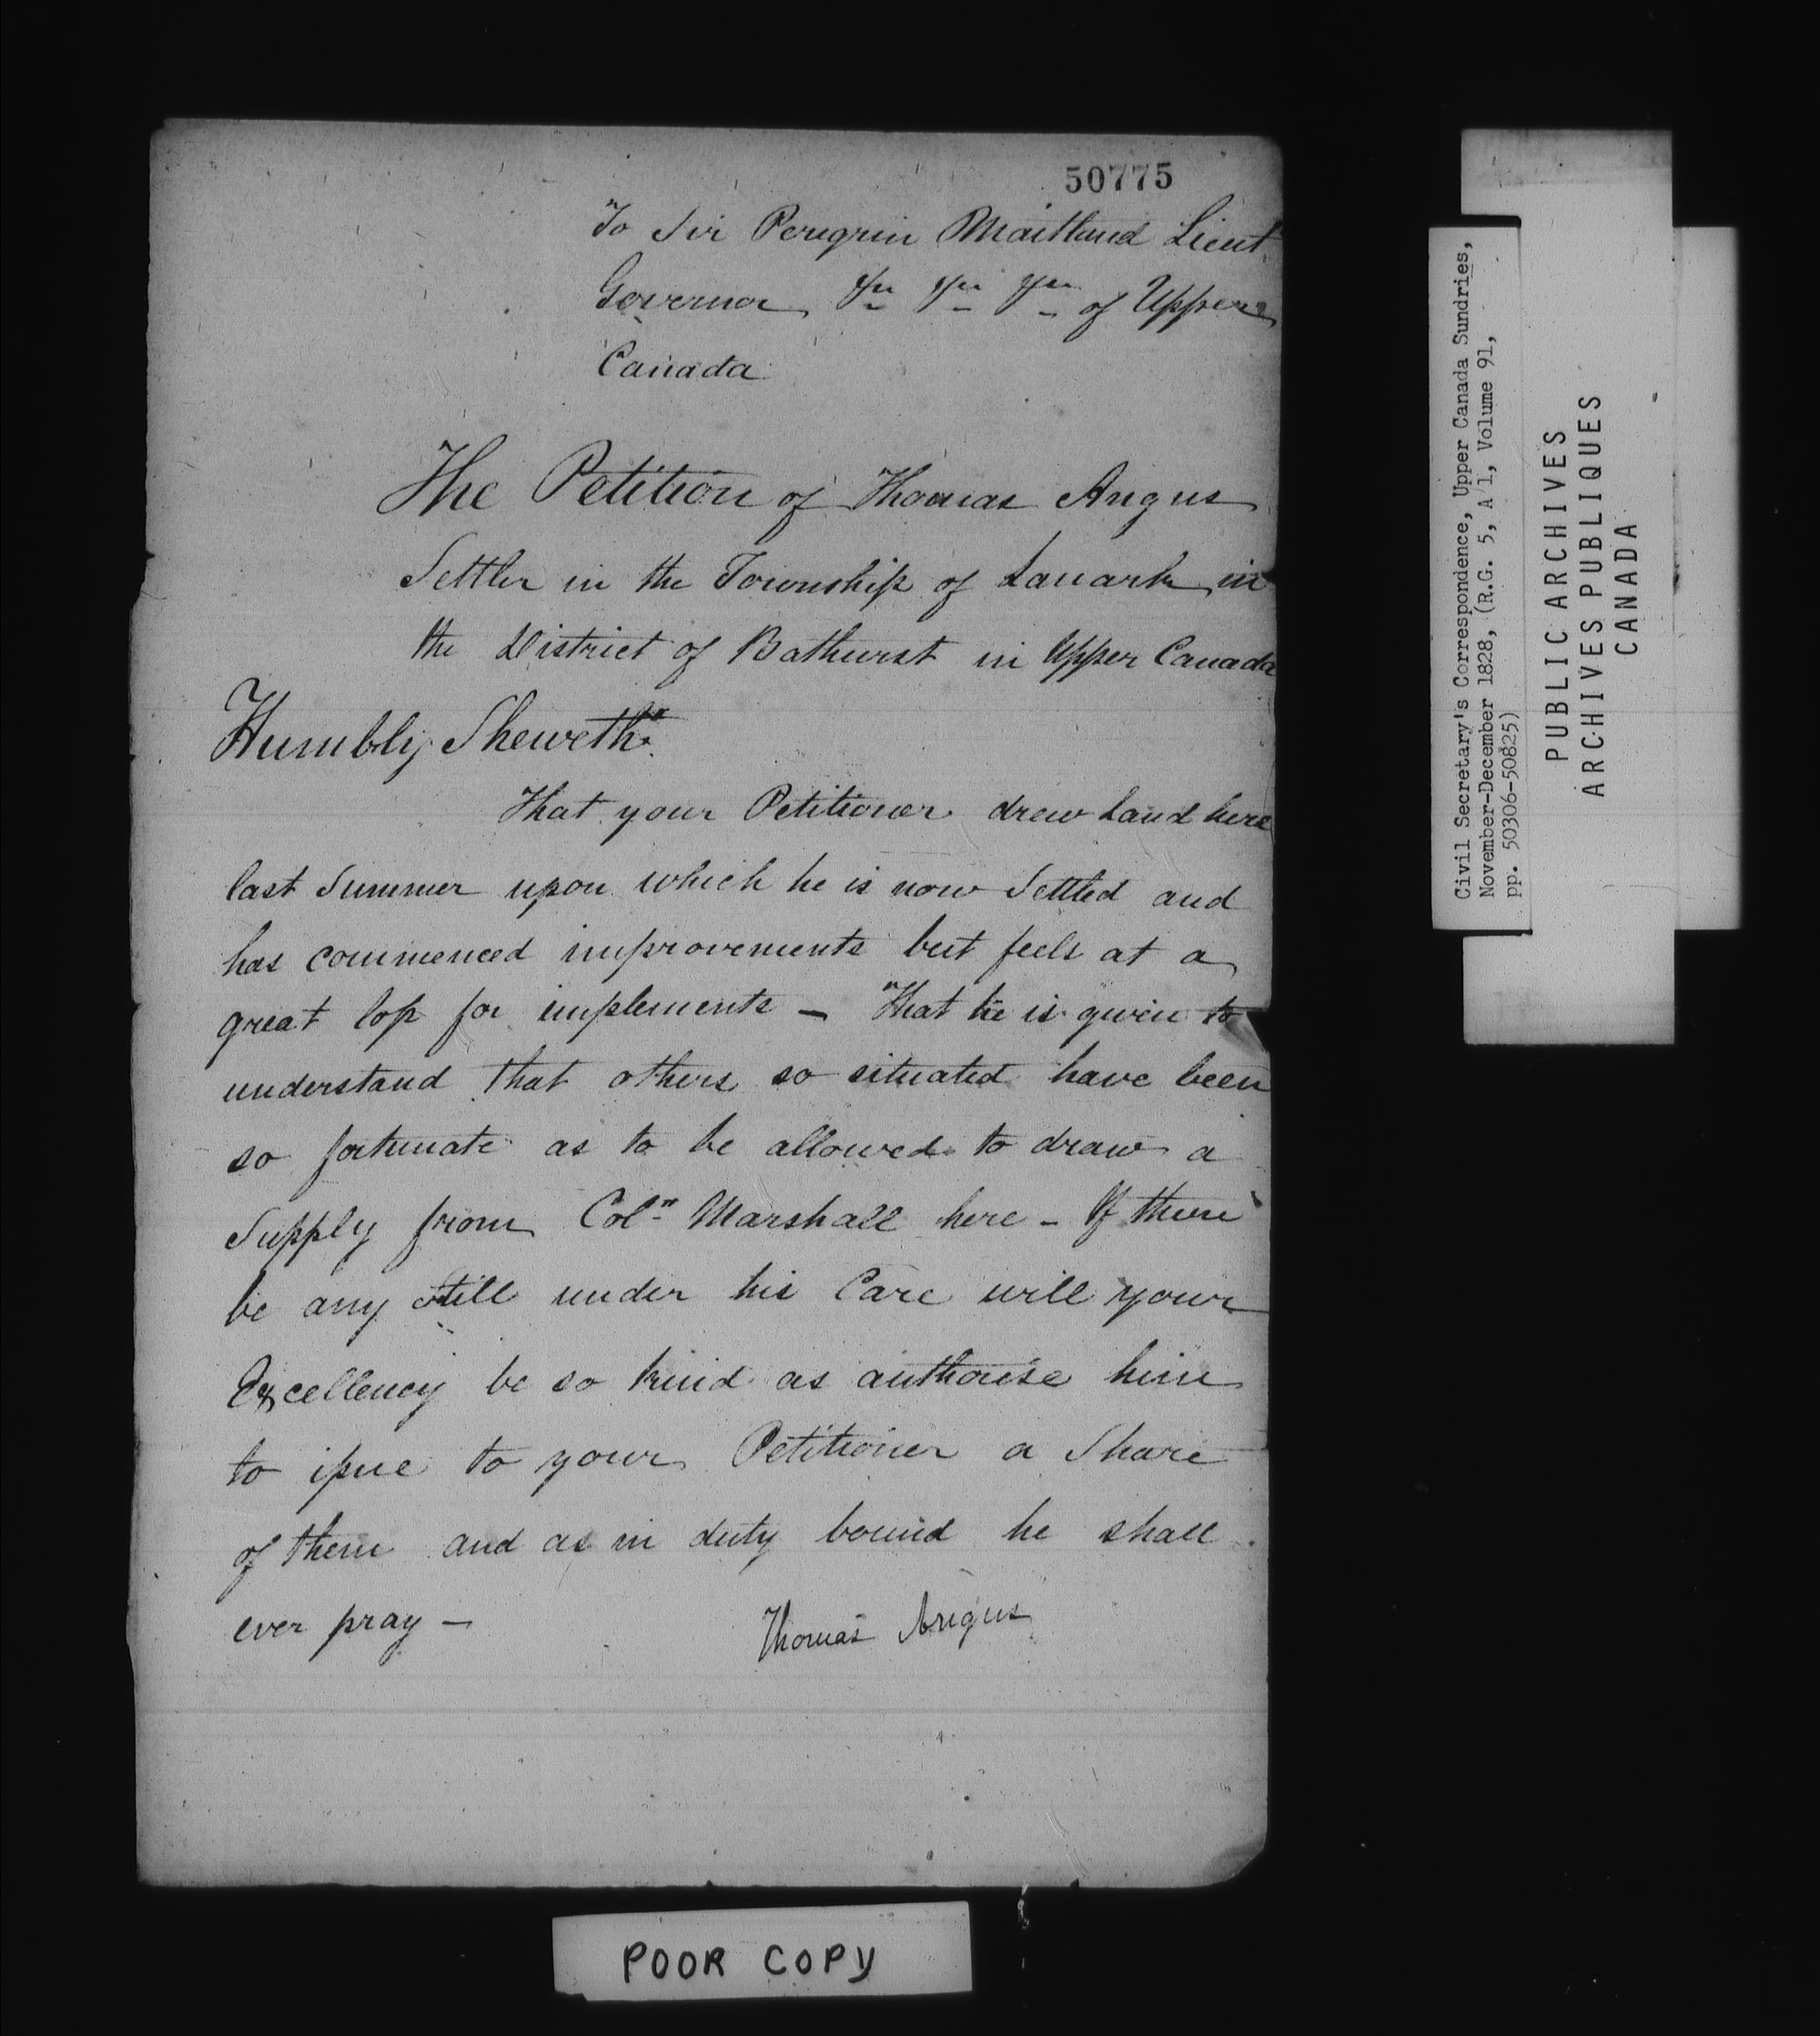 50775
To Sir Peregrin Maitland Lieut
Governor &c &c &c of Upper
Canada
The Petition of Thomas Angus
Settler in the Township of Lanark in
the District of Bathurst in Upper Canada
Humbly Sheweth
That your Petitioner drew Land here
last Summer upon which he is now Settled and
has commenced improvements but feels at a
great loss for implements — That he is given to
understand that others so situated have been
so fortunate as to be allowed to draw a
Supply from Coln Marshall here - If there
be any still under his Care will your
Excellency be so kind as authorise him
to issue to your Petitioner a Share
of them and as in duty bound he shall
ever pray —
Thomas Angus
POOR COPY
Civil Secretary's Correspondence, Upper Canada Sundries,
November-December 1828, (R.G. 5, A 1, Volume 91,
pp. 50306-50825)
PUBLIC ARCHIVES
ARCHIVES PUBLIQUES
CANADA